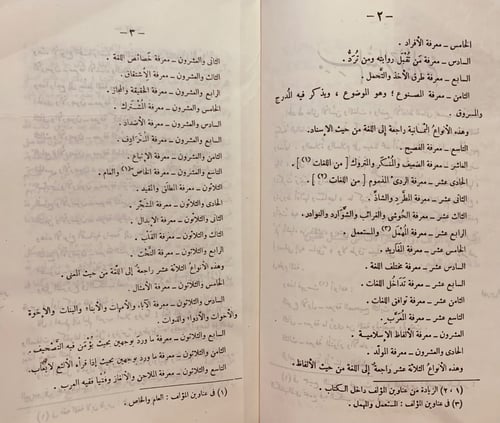 - ٢ -
الخامس - معرفة الأفراد .
السادس - معرفة من تُقْبَل روايته ومن تُرَدُّ .
السابع - معرفة طرق الأخذ والتحمل .
الثامن - معرفة المصنوع ؛ وهو الموضوع ، ويذكر فيه المُدرج
والمسروق .
وهذه الأنواعُ الثمانية راجعة إلى اللغة من حيث الإسناد .
التاسع - معرفة الفصيح .
العاشر - معرفة الضعيف والمُنْكَر والمتروك [ من اللغات (١) ] .
الحادى عشر - معرفة الردئ المذموم [ من اللغات (٢) ] .
الثانى عشر - معرفة المطَّرد والشاذّ .
الثالث عشر - معرفة الحُوشى والغرائب والشَّوارد والنوادر .
الرابع عشر - معرفة المُهْمَل (٣) والمستعمل .
الخامس عشر - معرفة المَفَاريد .
السادس عشر - معرفة مختلف اللغة .
السابع عشر - معرفة تَدَاخُل اللغات .
الثامن عشر - معرفة توافق اللغات .
التاسع عشر - معرفة المُعَرَّب .
العشرون - معرفة الألفاظ الإسلامية .
الحادى والعشرون - معرفة المولَّد .
وهذه الأنواع الثلاثة عشر راجعةٌ إلى اللغة من حيث الألفاظ .
(١ ، ٢) الزيادة من عناوين المؤلف داخل الكتاب .
(٣) فى عناوين المؤلف : المستعمل والمهمل .
- ٣ -
الثانى والعشرون - معرفة خصائص اللغة .
الثالث والعشرون - معرفة الاشتقاق .
الرابع والعشرون - معرفة الحقيقة والمجاز .
الخامس والعشرون - معرفة المُشْتَرك .
السادس والعشرون - معرفة الأضداد .
السابع والعشرون - معرفة المُتَرَادِف .
الثامن والعشرون - معرفة الإتباع .
التاسع والعشرون - معرفة الخاص (١) والعام .
الثلاثون - معرفة المطلق والمقيد .
الحادى والثلاثون - معرفة المُشَجَّر .
الثانى والثلاثون - معرفة الإبدال .
الثالث والثلاثون - معرفة القَلْب .
الرابع والثلاثون - معرفة النَّحْت .
وهذه الأنواعُ الثلاثة عشر راجعةٌ إلى اللغة من حيث المعنى .
الخامس والثلاثون - معرفة الأمثال .
السادس والثلاثون - معرفة الآباء والأمهات والأبناء والبنات والإخوة
والأخوات والأذواء والذوات .
السابع والثلاثون - معرفة ما ورد بوجهين بحيث يُؤْمَن فيه التَّصْحيف .
الثامن والثلاثون - معرفة ما ورد بوجهين بحيث إذا قرأه الألثغ لا يُعَاب .
التاسع والثلاثون - معرفة الملاحن والألغاز وفُتْيا فقيه العرب .
(١) فى عناوين المؤلف : العام والخاص .